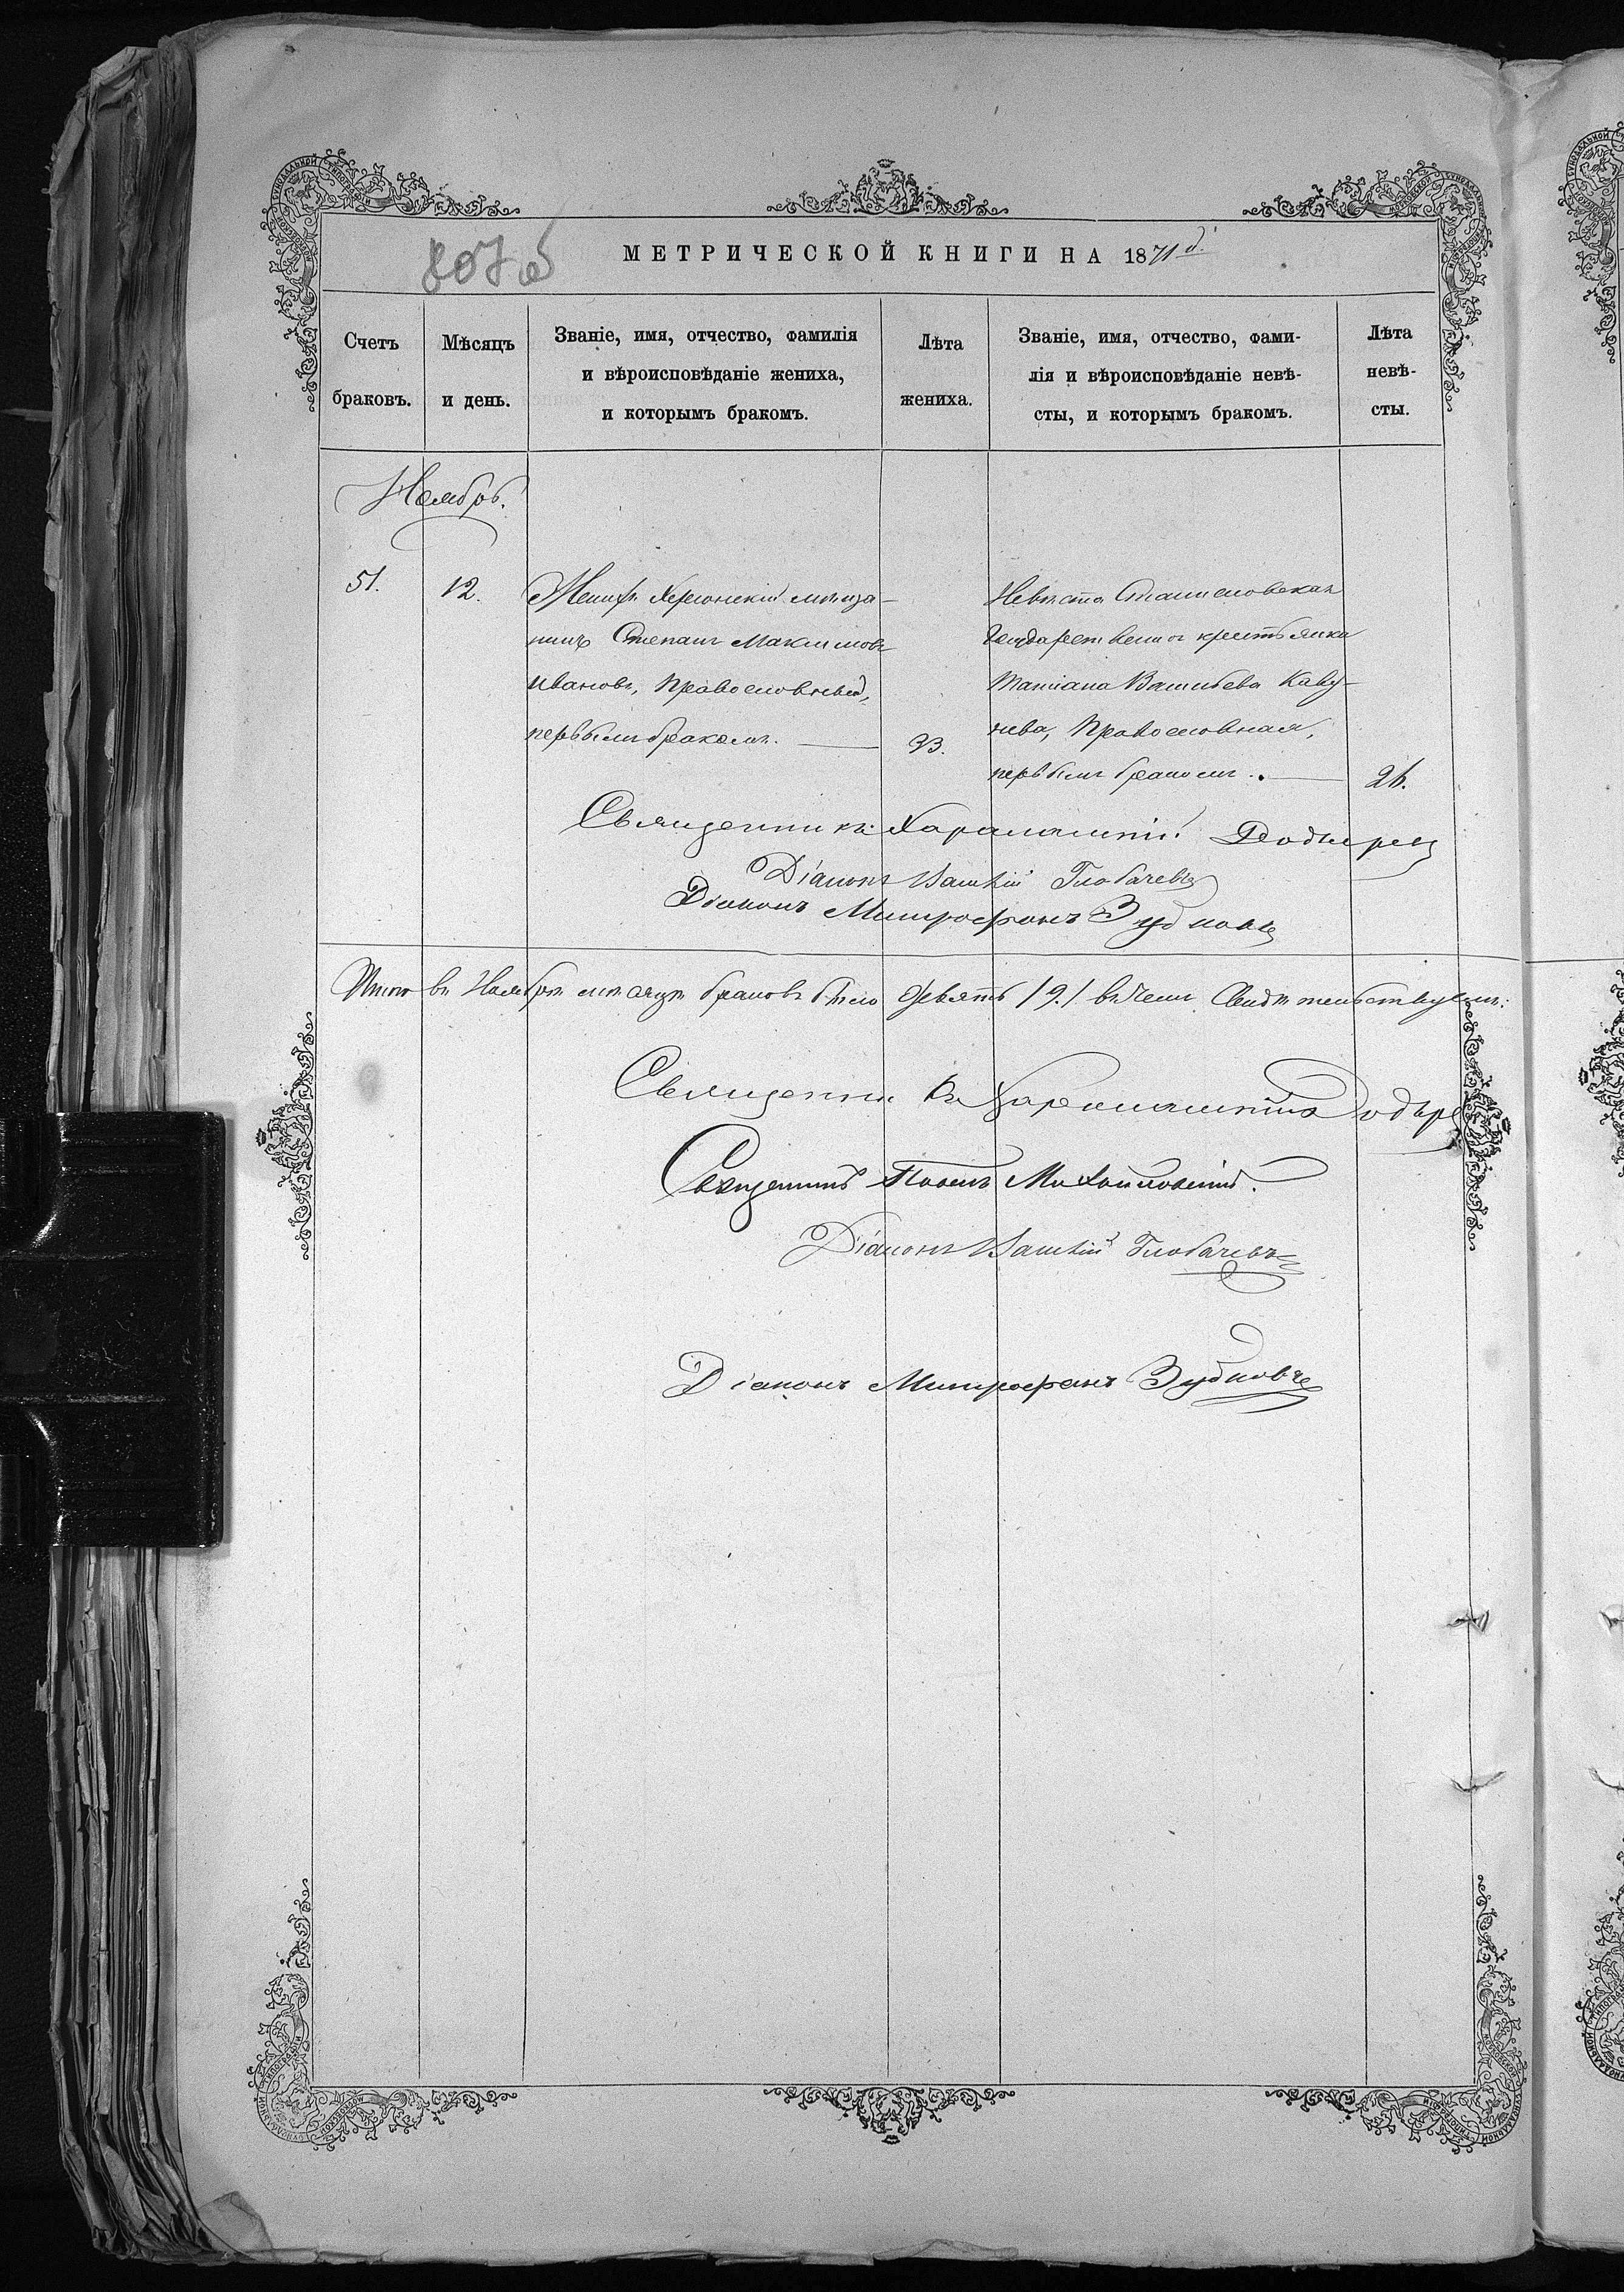 807 об
МЕТРИЧЕСКОЙ КНИГИ НА 1871 г.
Счетъ браковъ.
Мѣсяцъ и день.
Званіе, имя, отчество, фамилія
и вѣроисповѣданіе жениха,
и которымъ бракомъ.
Лѣта жениха.
Званіе, имя, отчество, фами-
лія и вѣроисповѣданіе невѣ-
сты, и которымъ бракомъ.
Лѣта невѣ-
сты.
Ноябрь.
51.
12.
Женихъ Херсонскій мѣща-
нинъ Степанъ Максимовъ
Ивановъ, Православный,
первымъ бракомъ.
23.
Невѣста Станиславская
Государственная крестьянка
Татіана Васильева Каву-
нева, Православная,
первымъ бракомъ.
26.
Священникъ Харалампій
Діаконъ Василій Глобачевъ
Діаконъ Митрофанъ Зубковъ
Итого въ Ноябрѣ мѣсяцѣ браковъ было девять /9./ въ чемъ Свидѣтельствуемъ:
Священникъ Харалампій
Священникъ Павелъ Михайловскій.
Діаконъ Василій Глобачевъ
Діаконъ Митрофанъ Зубковъ